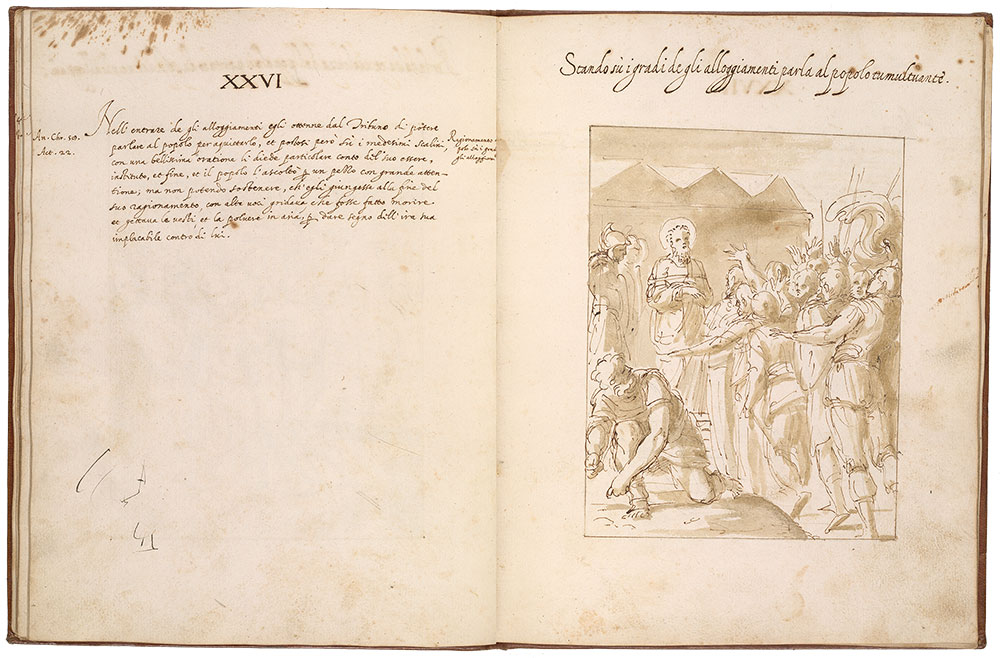 XXVI
An. Chr. 58.
Act. 22.
Nell' entrare de gli alloggiamenti egli ottenne dal Tribuno di potere
parlare al popolo per aquietarlo, et postosi però sù i medesimi scalini,
con una bellissima oratione li diede particolare conto del suo essere,
instituto, et fine, et il popolo l'ascoltò un pezzo con grande atten-
tione; ma non potendo sostenere, ch'egli giungesse alla fine del
suo ragionamento, con alte voci gridava che fosse fatto morire
et gettava le vesti et la polvere in aria, dare segno dell' ira sua
implacabile contro di lui.
Ragionamento
sù i gra
gli alloggiam
Stando sù i gradi de gli alloggiamenti parla al popolo tumultuante.